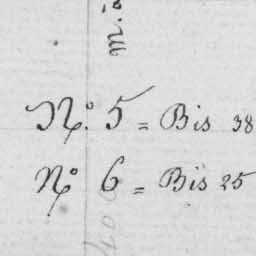 N.º 5 = Bis 38
Nº 6 = Bis 25